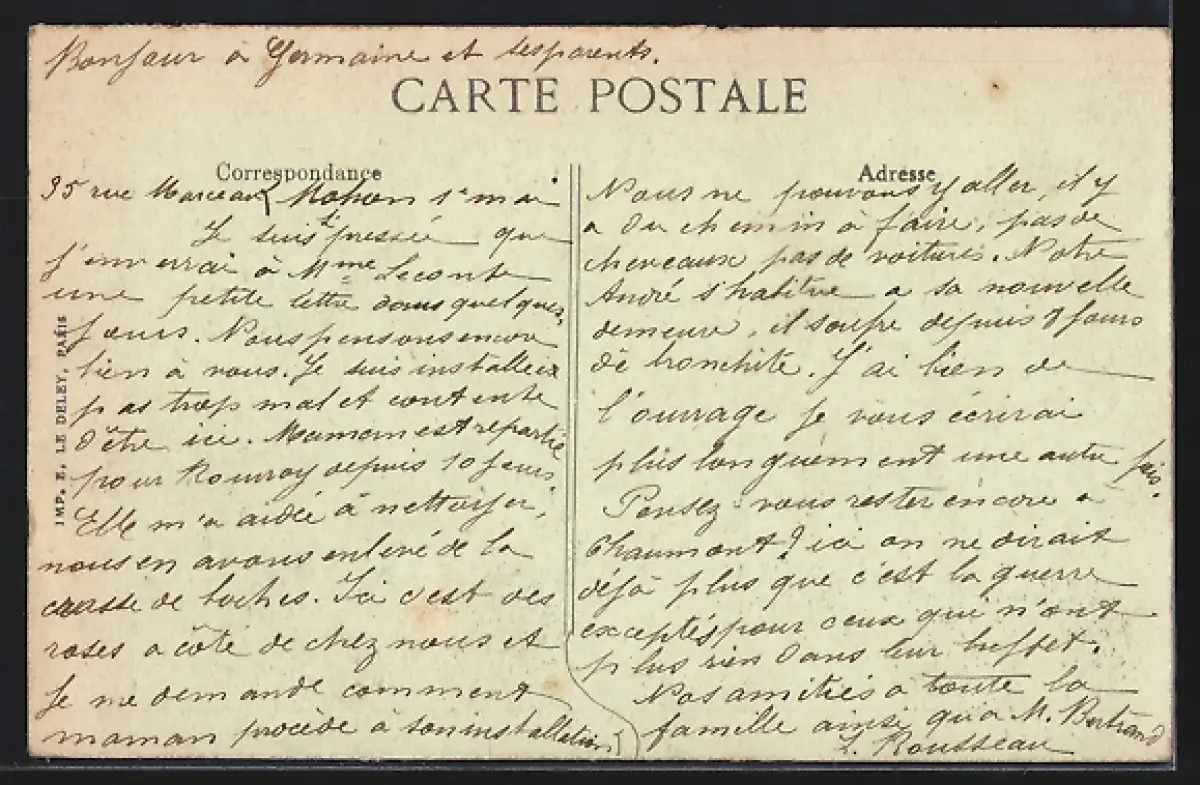 Bonjour à Germaine et ses parents.
CARTE POSTALE
Correspondance
35 rue Marceau Mohon 1er mai
Je suis si pressée que
j'enverrai à Mme Leconte
une petite lettre dans quelques
jours. Nous pensons encore
bien à vous. Je suis installée
pas trop mal et contente
d'être ici. Maman est repartie
pour Rouvroy depuis 10 jours.
Elle m'a aidée à nettoyer,
nous en avons enlevé de la
crasse de boches. Ici c'est des
roses à côté de chez nous et
je me demande comment
maman procède à son installation
Adresse
Nous ne pouvons y aller, il y
a du chemin à faire, pas de
chevaux pas de voitures. Notre
André s'habitue a sa nouvelle
demeure, il soufre depuis 8 jours
de bronchite. J'ai bien de
l'ouvrage je vous écrirai
plus longuement une autre fois.
Pensez vous rester encore à
Chaumont? ici on ne dirait
déjà plus que c'est la guerre
exceptés pour ceux qui n'ont
plus rien dans leur buffet.
Nos amitiés a toute la
famille ainsi qu'a M. Bertrand
L. Rousseau
IMP. E. LE DELEY, PARIS